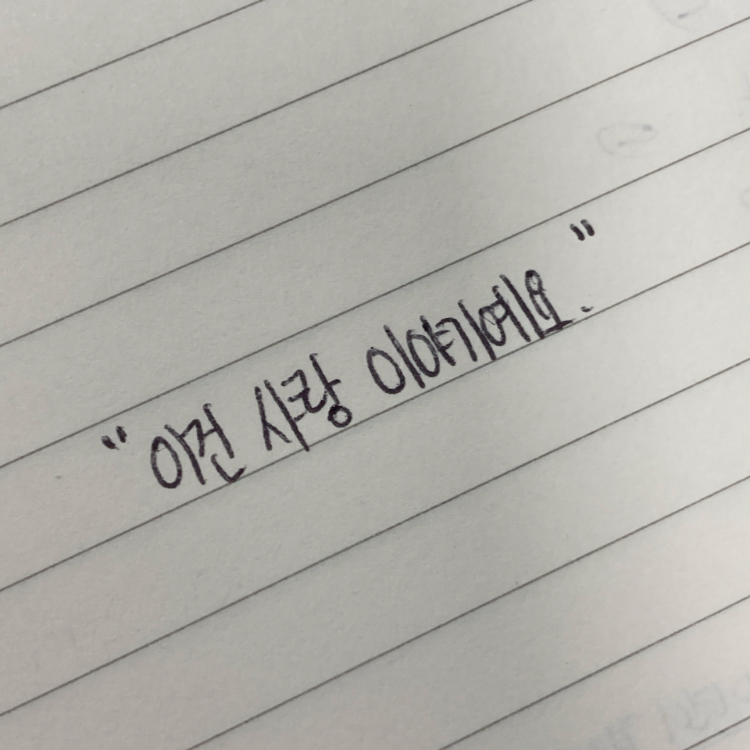 "이건 사랑 이야기예요."